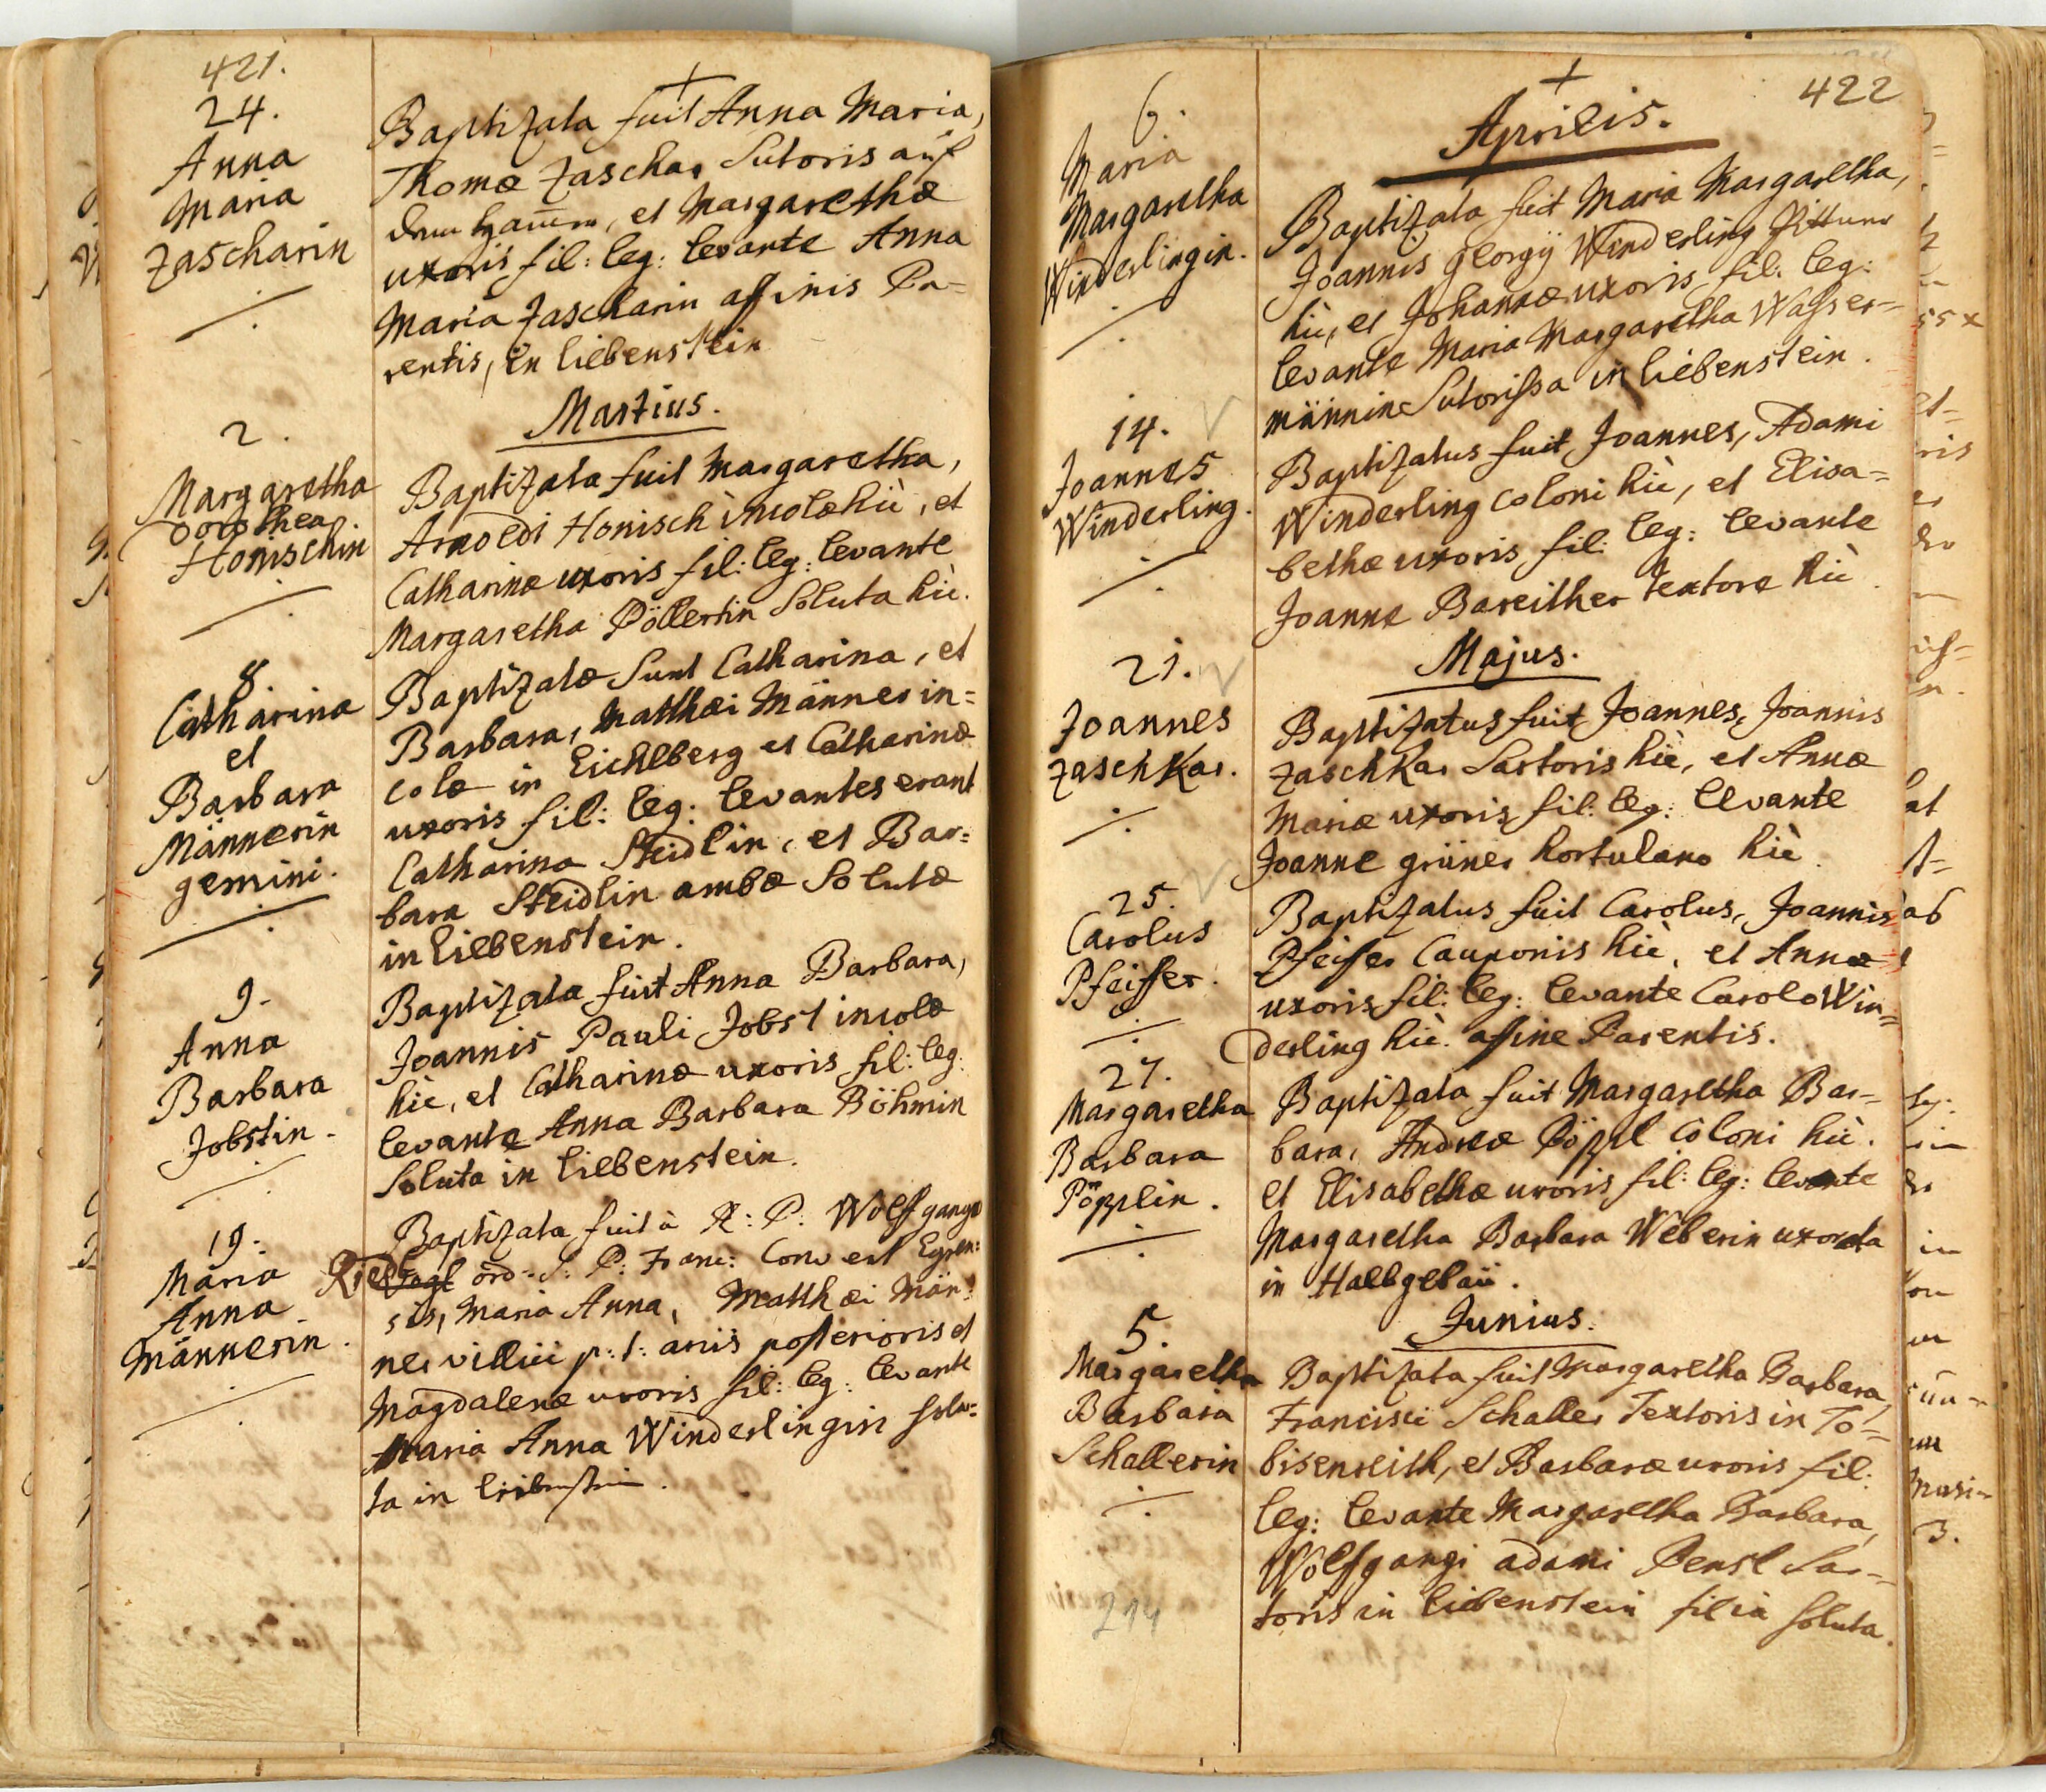 421.
24.
Anna
Maria
Zascharin
Baptizata fuit Anna Maria,
Thomæ Zaschar Sutoris auf
dem, et Margarethæ
uxoris fil: leg: levante Anna
Maria Zascharin affinis Pa=
rentis, in Liebenstein
Martius.
2.
Margaretha
Dorothea
Honischin.
Baptizata fuit Margaretha,
Arnoldi Honisch incolæ hìc, et
Catharinæ uxoris fil: leg: levante
Margaretha Pöllertin Soluta hìc.
8.
Catharina
et
Barbara
Männerin
gemini.
Baptizatæ Sunt Catharina, et
Barbara, Matthæi Männer in=
colæ in Eichelberg et Catharinæ
uxoris fil: leg: levantes erant
Catharina Steidlin, et Bar=
bara Steidlin ambæ Solutæ
in Liebenstein.
9.
Anna
Barbara
Jobstin.
Baptizata fuit Anna Barbara,
Joannis Pauli Jobst incolæ
hìc, et Catharinæ uxoris fil: leg:
levante Anna Barbara Böhmin
Soluta in Liebenstein.
19.
Maria
Anna
Männerin.
Baptizata fuit à R: P: Wolfgango
ord: S: P: Franc: Convent Egren:
sis, Maria Anna, Matthæi Män=
ner villici p: t: arcis posterioris et
Magdalenæ uxoris fil: leg: levante
Maria Anna Winderlingin solu=
ta in Liebenstein.
422
Aprilis.
6.
Maria
Margaretha
Winderlingin.
Baptizata fuit Maria Margaretha,
Joannis Georgij Winderling
hìc, et Johannæ uxoris fil: leg:
levante Maria Margaretha Wasser=
männin Sutorissa in Liebenstein.
14.
Joannes
Winderling.
Baptizatus fuit Joannes, Adami
Winderling coloni hìc, et Elisa=
bethæ uxoris fil: leg: levante
Joanne Bareither textore hìc.
Majus.
21.
Joannes
Zaschkar.
Baptizatus fuit Joannes, Joannis
Zaschkar Sartoris hìc, et Annæ
Mariæ uxoris fil: leg: levante
Joanne grüner hortulano hìc.
25.
Carolus
Pfeiffer.
Baptizatus fuit Carolus, Joannis
Pfeiffer Cauponis hìc, et Annæ
uxoris fil: leg: levante Carolo Win=
derling hìc. affine Parentis.
27.
Margaretha
Barbara
Pöpplin.
Baptizata fuit Margaretha Bar=
bara, Andreæ Pöppl coloni hìc.
et Elisabethæ uxoris fil: leg: levante
Margaretha Barbara Weberin uxorata
in Halbgebäü.
Junius.
5.
Margaretha
Barbara
Schallerin
Baptizata fuit Margaretha Barbara,
Francisci Schaller Textoris in To=
bisenreith, et Barbaræ uxoris fil:
leg: levante Margaretha Barbara,
Wolfgangi adami Pensl Sar=
toris in Liebenstein filia soluta.
214